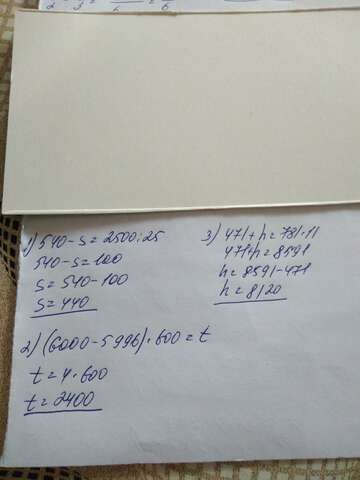 1) 540-s=2500:25
540-s=100
s=540-100
s=440
2) (6000-5996)·600=t
t=4·600
t=2400
3) 471+h=781·11
471+h=8591
h=8591-471
h=8120